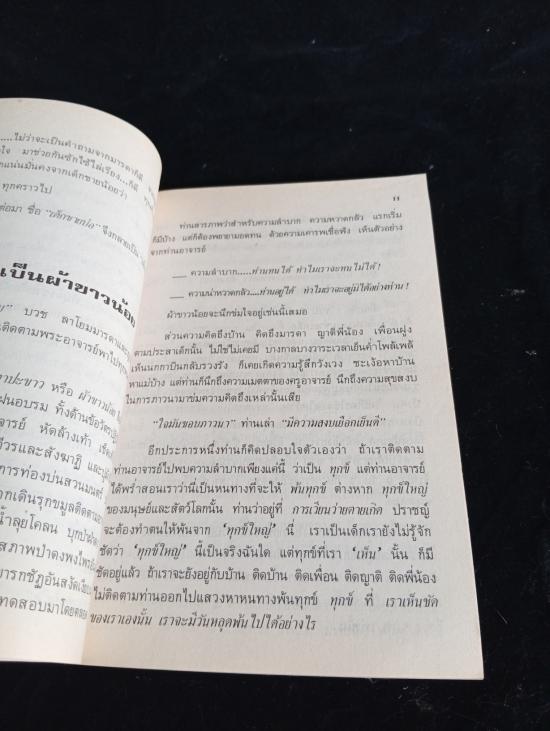 .....ไม่ว่าจะเป็นคำถามจากมารดาก็ดี
มาช่วยกันซักไซ้ไล่เรียง...ก็ดี
แน่นมั่นคงจากเด็กชายน้อยว่า
ทุกคราวไป
ต่อมา ชื่อ “เด็กชายบ่อ” จึงกลายเป็น
เป็นผ้าขาวน้อย
บวช ลาโยมมารดาและ
ติดตามพระอาจารย์พาไป
ตาปะขาว หรือ ผ้าขาวน้อย
ฝนอบรม ทั้งด้านข้อวัตรปฏิ
อาจารย์ หัดล้างเท้า เช็ด
จีวรและสังฆาฏิ และ
การท่องบ่นสวดมนต์
ากเดินรุกขมูลติดตาม
น้ำลุยโคลน บุกป่า
สภาพป่าดงพงไพร
ทดสอบมาโดยตลอด
๑๑
ท่านสารภาพว่าสำหรับความลำบาก ความหวาดกลัว แรกเริ่ม
ก็มีบ้าง แต่ก็ต้องพยายามอดทน ด้วยความเคารพเชื่อฟัง เห็นตัวอย่าง
จากท่านอาจารย์
___ ความลำบาก.....ท่านทนได้ ทำไมเราจะทนไม่ได้!
___ ความน่าหวาดกลัว....ท่านอยู่ได้ ทำไมเราจะอยู่มิได้อย่างท่าน!
ผ้าขาวน้อยจะนึกข่มใจอยู่เช่นนี้เสมอ
ส่วนความคิดถึงบ้าน คิดถึงมารดา ญาติพี่น้อง เพื่อนฝูง
ตามประสาเด็กนั้น ไม่ใช่ไม่เคยมี บางกาลบางวาระเวลาเย็นค่ำโพล้เพล้
เห็นนกกาบินกลับรวงรัง ก็เคยเกิดความรู้สึกวังเวง ชะเง้อหาบ้าน
หาแม่บ้าง แต่ท่านก็นึกถึงความเมตตาของครูอาจารย์ นึกถึงความสุขสงบ
ในการภาวนามาข่มความคิดถึงเหล่านั้นเสีย
“ใจมันชอบภาวนา” ท่านเล่า “มีความสงบเยือกเย็นดี”
อีกประการหนึ่งท่านก็คิดปลอบใจตัวเองว่า ถ้าเราติดตาม
ท่านอาจารย์ไปพบความลำบากเพียงแค่นี้ ว่าเป็น ทุกข์ แต่ท่านอาจารย์
ได้พร่ำสอนเราว่านี่เป็นหนทางที่จะให้ พ้นทุกข์ ต่างหาก ทุกข์ใหญ่
ของมนุษย์และสัตว์โลกนั้น ท่านว่าอยู่ที่ การเวียนว่ายตายเกิด ปราชญ์
จะต้องทำตนให้พ้นจาก ‘ทุกข์ใหญ่’ นี้ เราเป็นเด็กเรายังไม่รู้จัก
ชัดว่า ‘ทุกข์ใหญ่’ นี้เป็นจริงฉันใด แต่ทุกข์ที่เรา ‘เห็น’ นั้น ก็มี
ชัดอยู่แล้ว ถ้าเราจะยังอยู่กับบ้าน ติดบ้าน ติดเพื่อน ติดญาติ ติดพี่น้อง
ไม่ติดตามท่านออกไปแสวงหาหนทางพ้นทุกข์ ทุกข์ ที่ เราเห็นชัด
ของเราเองนั้น เราจะมีวันหลุดพ้นไปได้อย่างไร